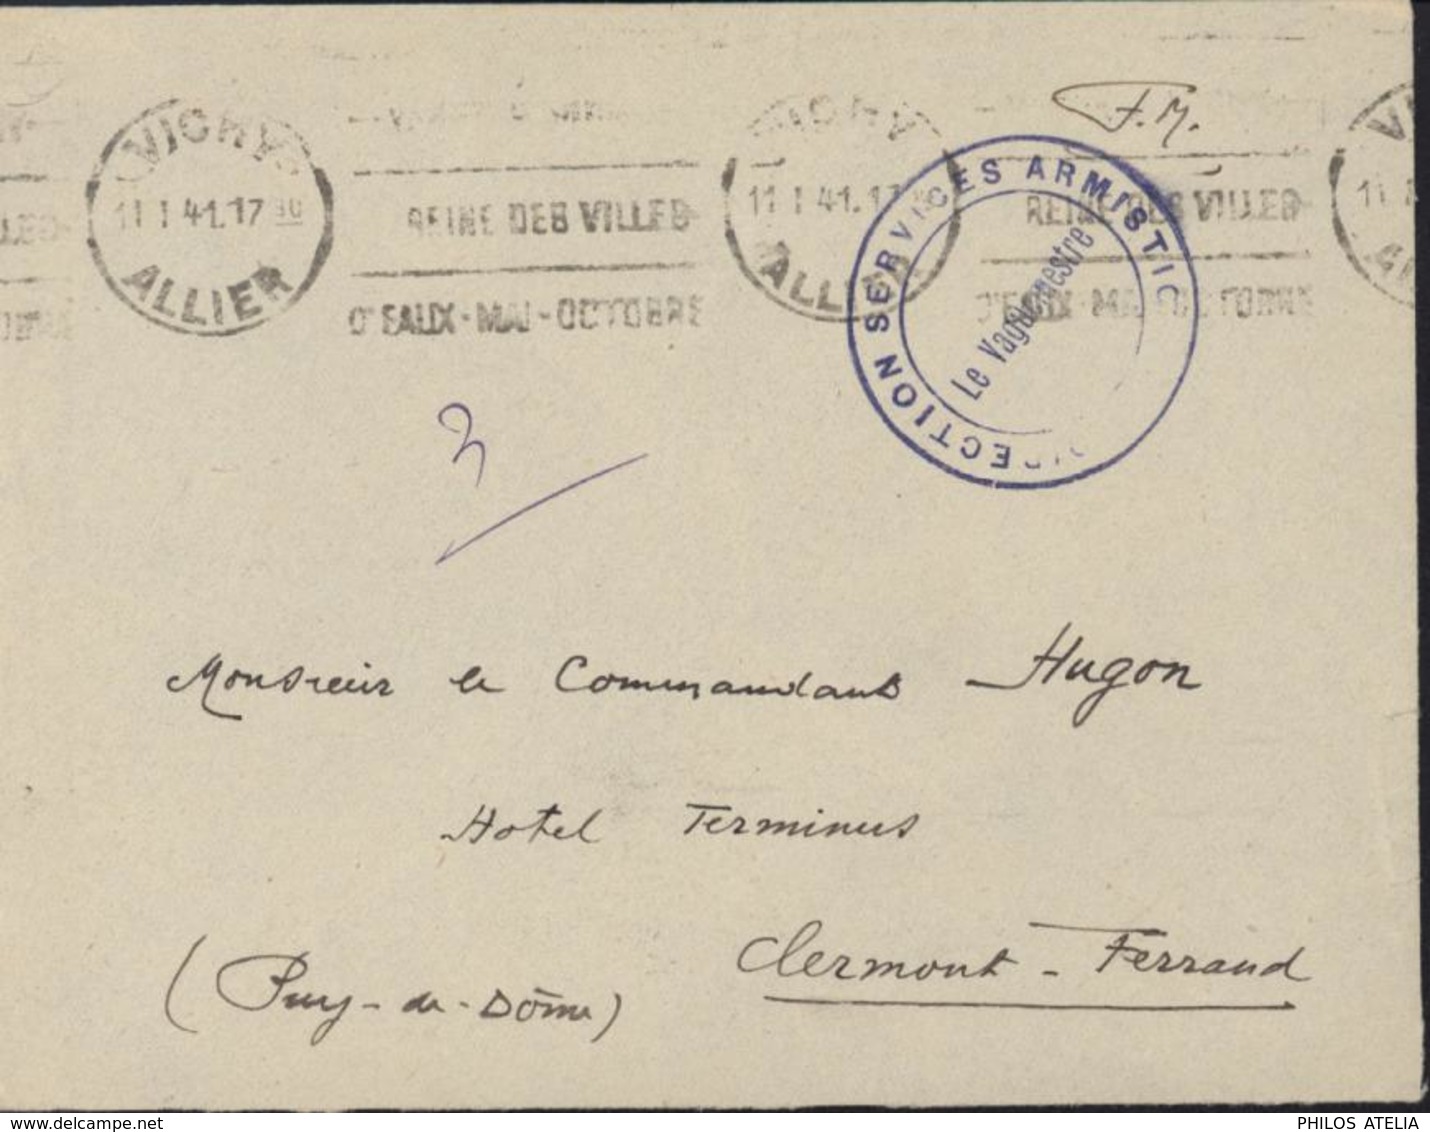 F.M.
VICHY
11 I 41.17 30
ALLIER
REINE DES VILLES
D'EAUX-MAI-OCTOBRE
VICHY
11 I 41.17
ALLIER
REINE DES VILLES
D'EAUX-MAI-OCTOBRE
DIRECTION SERVICES ARMISTICE
Le Vaguemestre
Monsieur le Commandant Hugon
Hotel Terminus
Clermont-Ferrand
(Puy-de-Dôme)
PHILOS ATELIA